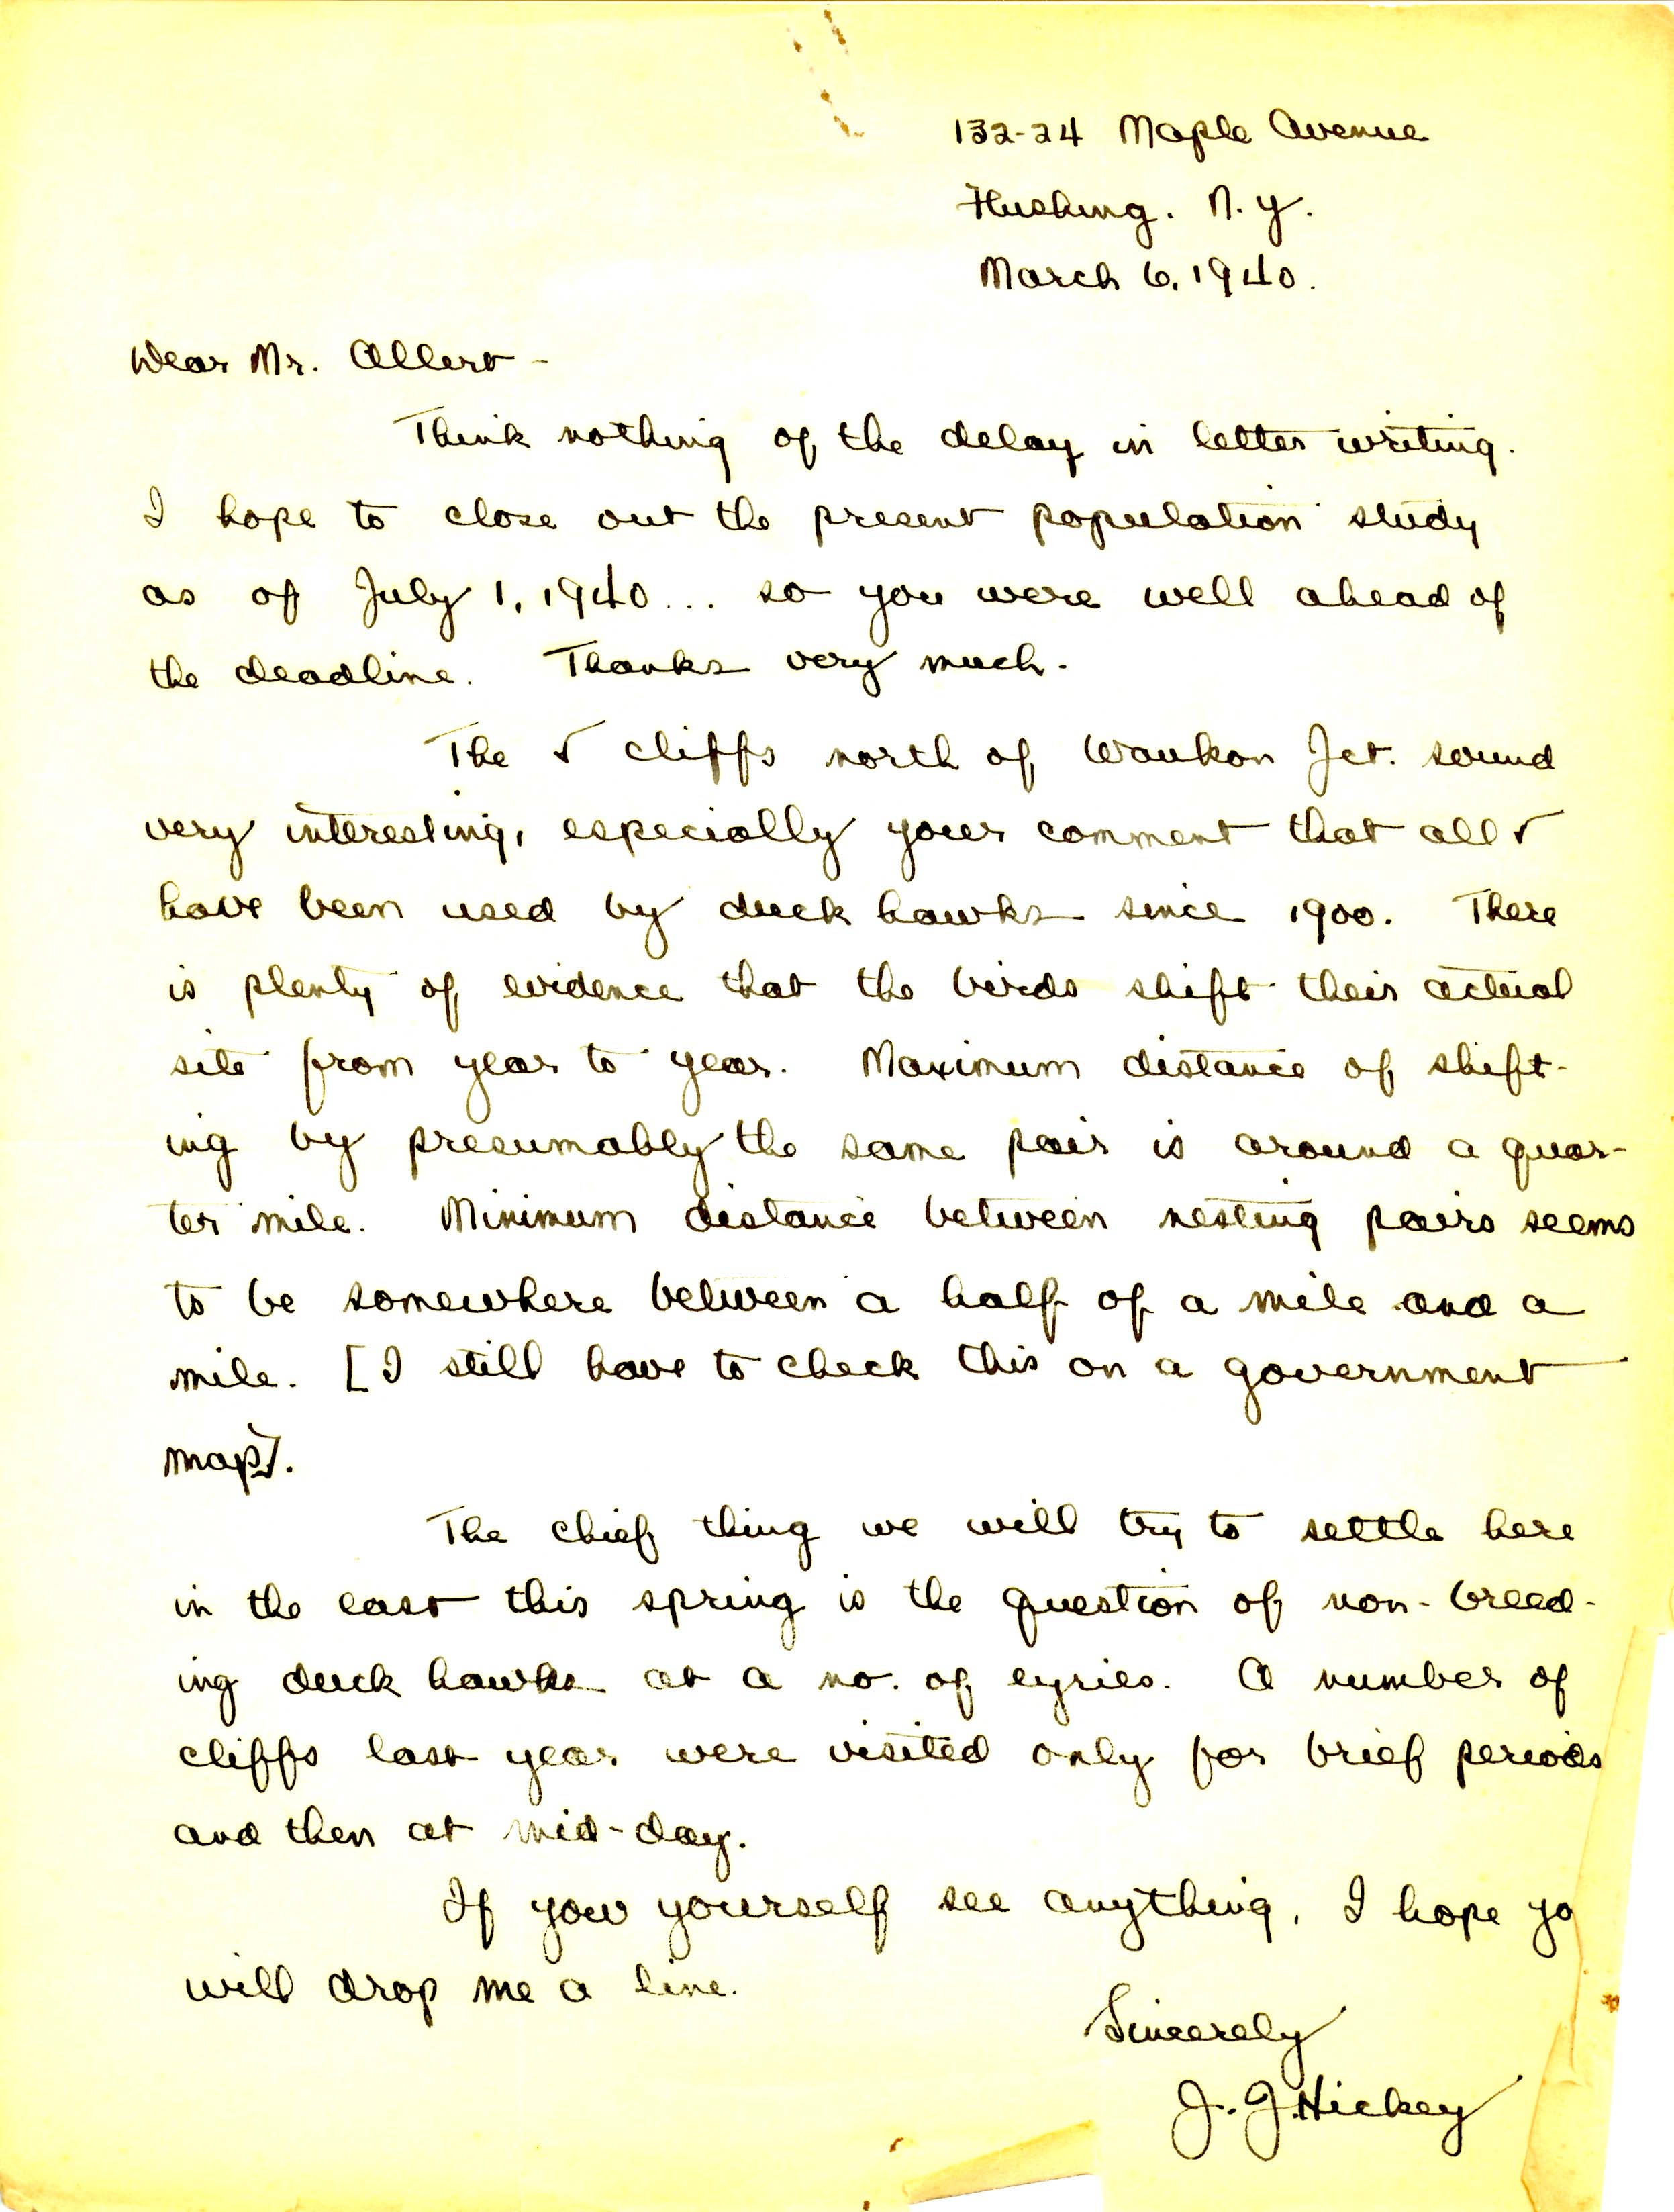 132-24 Maple Avenue
Flushing. N.Y.
March 6, 1940.
Dear Mr. Allert -
Think nothing of the delay in letter writing.
I hope to close out the present population study
as of July 1, 1940... so you were well ahead of
the deadline. Thanks very much.
The 5 cliffs north of Waukon Jct. sound
very interesting, especially your comment that all 5
have been used by duck hawks since 1900. There
is plenty of evidence that the birds shift their actual
site from year to year. Maximum distance of shift-
ing by presumably the same pair is around a quar-
ter mile. Minimum distance between nesting pairs seems
to be somewhere between a half of a mile and a
mile. [I still have to check this on a government
map].
The chief thing we will try to settle here
in the east this spring is the question of non-breed-
ing duck hawks at a no. of eyries. A number of
cliffs last year were visited only for brief periods
and then at mid-day.
If you yourself see anything, I hope yo
will drop me a line.
Sincerely
J. J. Hickey